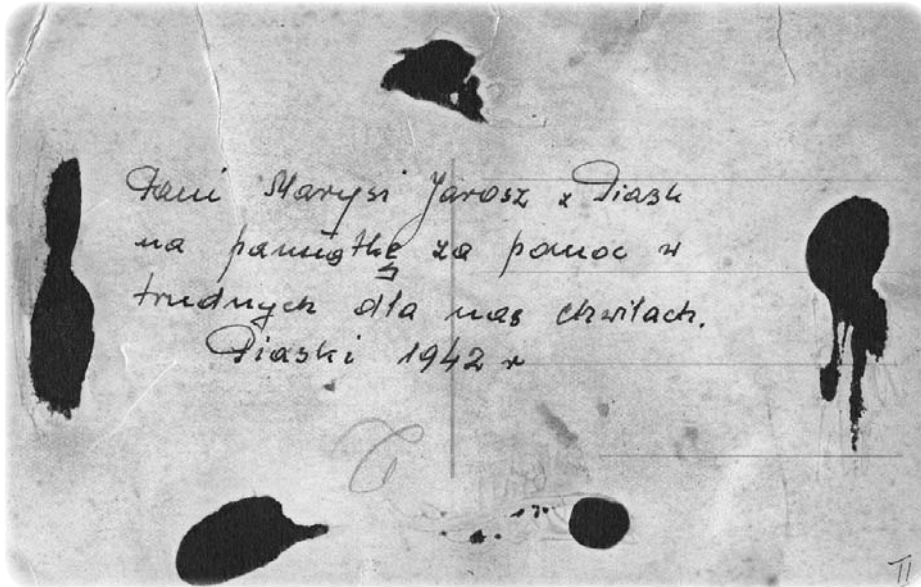 Pani Marysi Jarosz z Piask
na pamiątkę za pomoc w
trudnych dla nas chwilach.
Piaski 1942 r